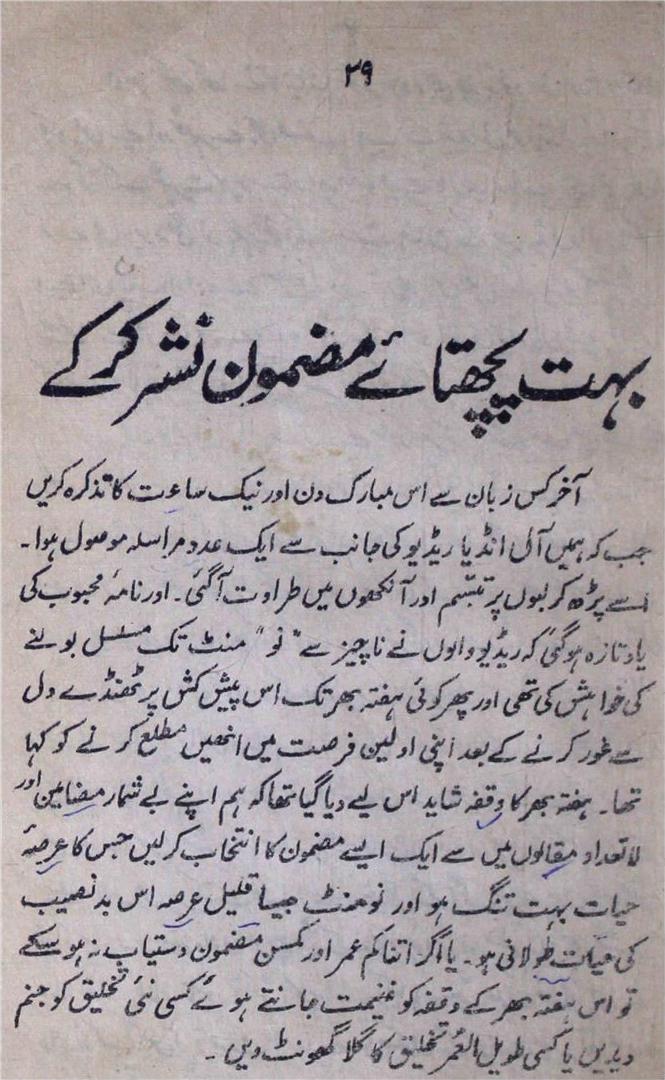 ۳۹
بہت پچھتائے مضمون نشر کر کے
آخر کس زبان سے اس مبارک دن اور نیک ساعت کا تذکرہ کریں
جب کہ ہمیں آل انڈیا ریڈیو کی جانب سے ایک عدد مراسلہ موصول ہوا۔
اسے پڑھ کر لبوں پر تبسّم اور آنکھوں میں طراوت آ گئی۔ اور نامۂ محبوب کی
یاد تازہ ہو گئی کہ ریڈیو والوں نے ناچیز سے "نو" منٹ تک مسلسل بولنے
کی خواہش کی تھی اور پھر کوئی ہفتہ بھر تک اس پیش کش پر ٹھنڈے دل
سے غور کرنے کے بعد اپنی اولین فرصت میں انھیں مطلع کرنے کو کہا
تھا۔ ہفتہ بھر کا وقفہ شاید اس لیے دیا گیا تھا کہ ہم اپنے بے شمار مضامین اور
لا تعداد مقالوں میں سے ایک ایسے مضمون کا انتخاب کر لیں جس کا عرصۂ
حیات بہت تنگ ہو اور نو منٹ جیسا قلیل عرصہ اس بدنصیب
کی حیات طولانی ہو۔ یا اگر اتنا کم عمر اور کمسن مضمون دستیاب نہ ہو سکے
تو اس ہفتہ بھر کے وقفہ کو غنیمت جانتے ہوئے کسی نئی تخلیق کو جنم
دیدیں یا کسی طویل العمر تخلیق کا گلا گھونٹ دیں۔